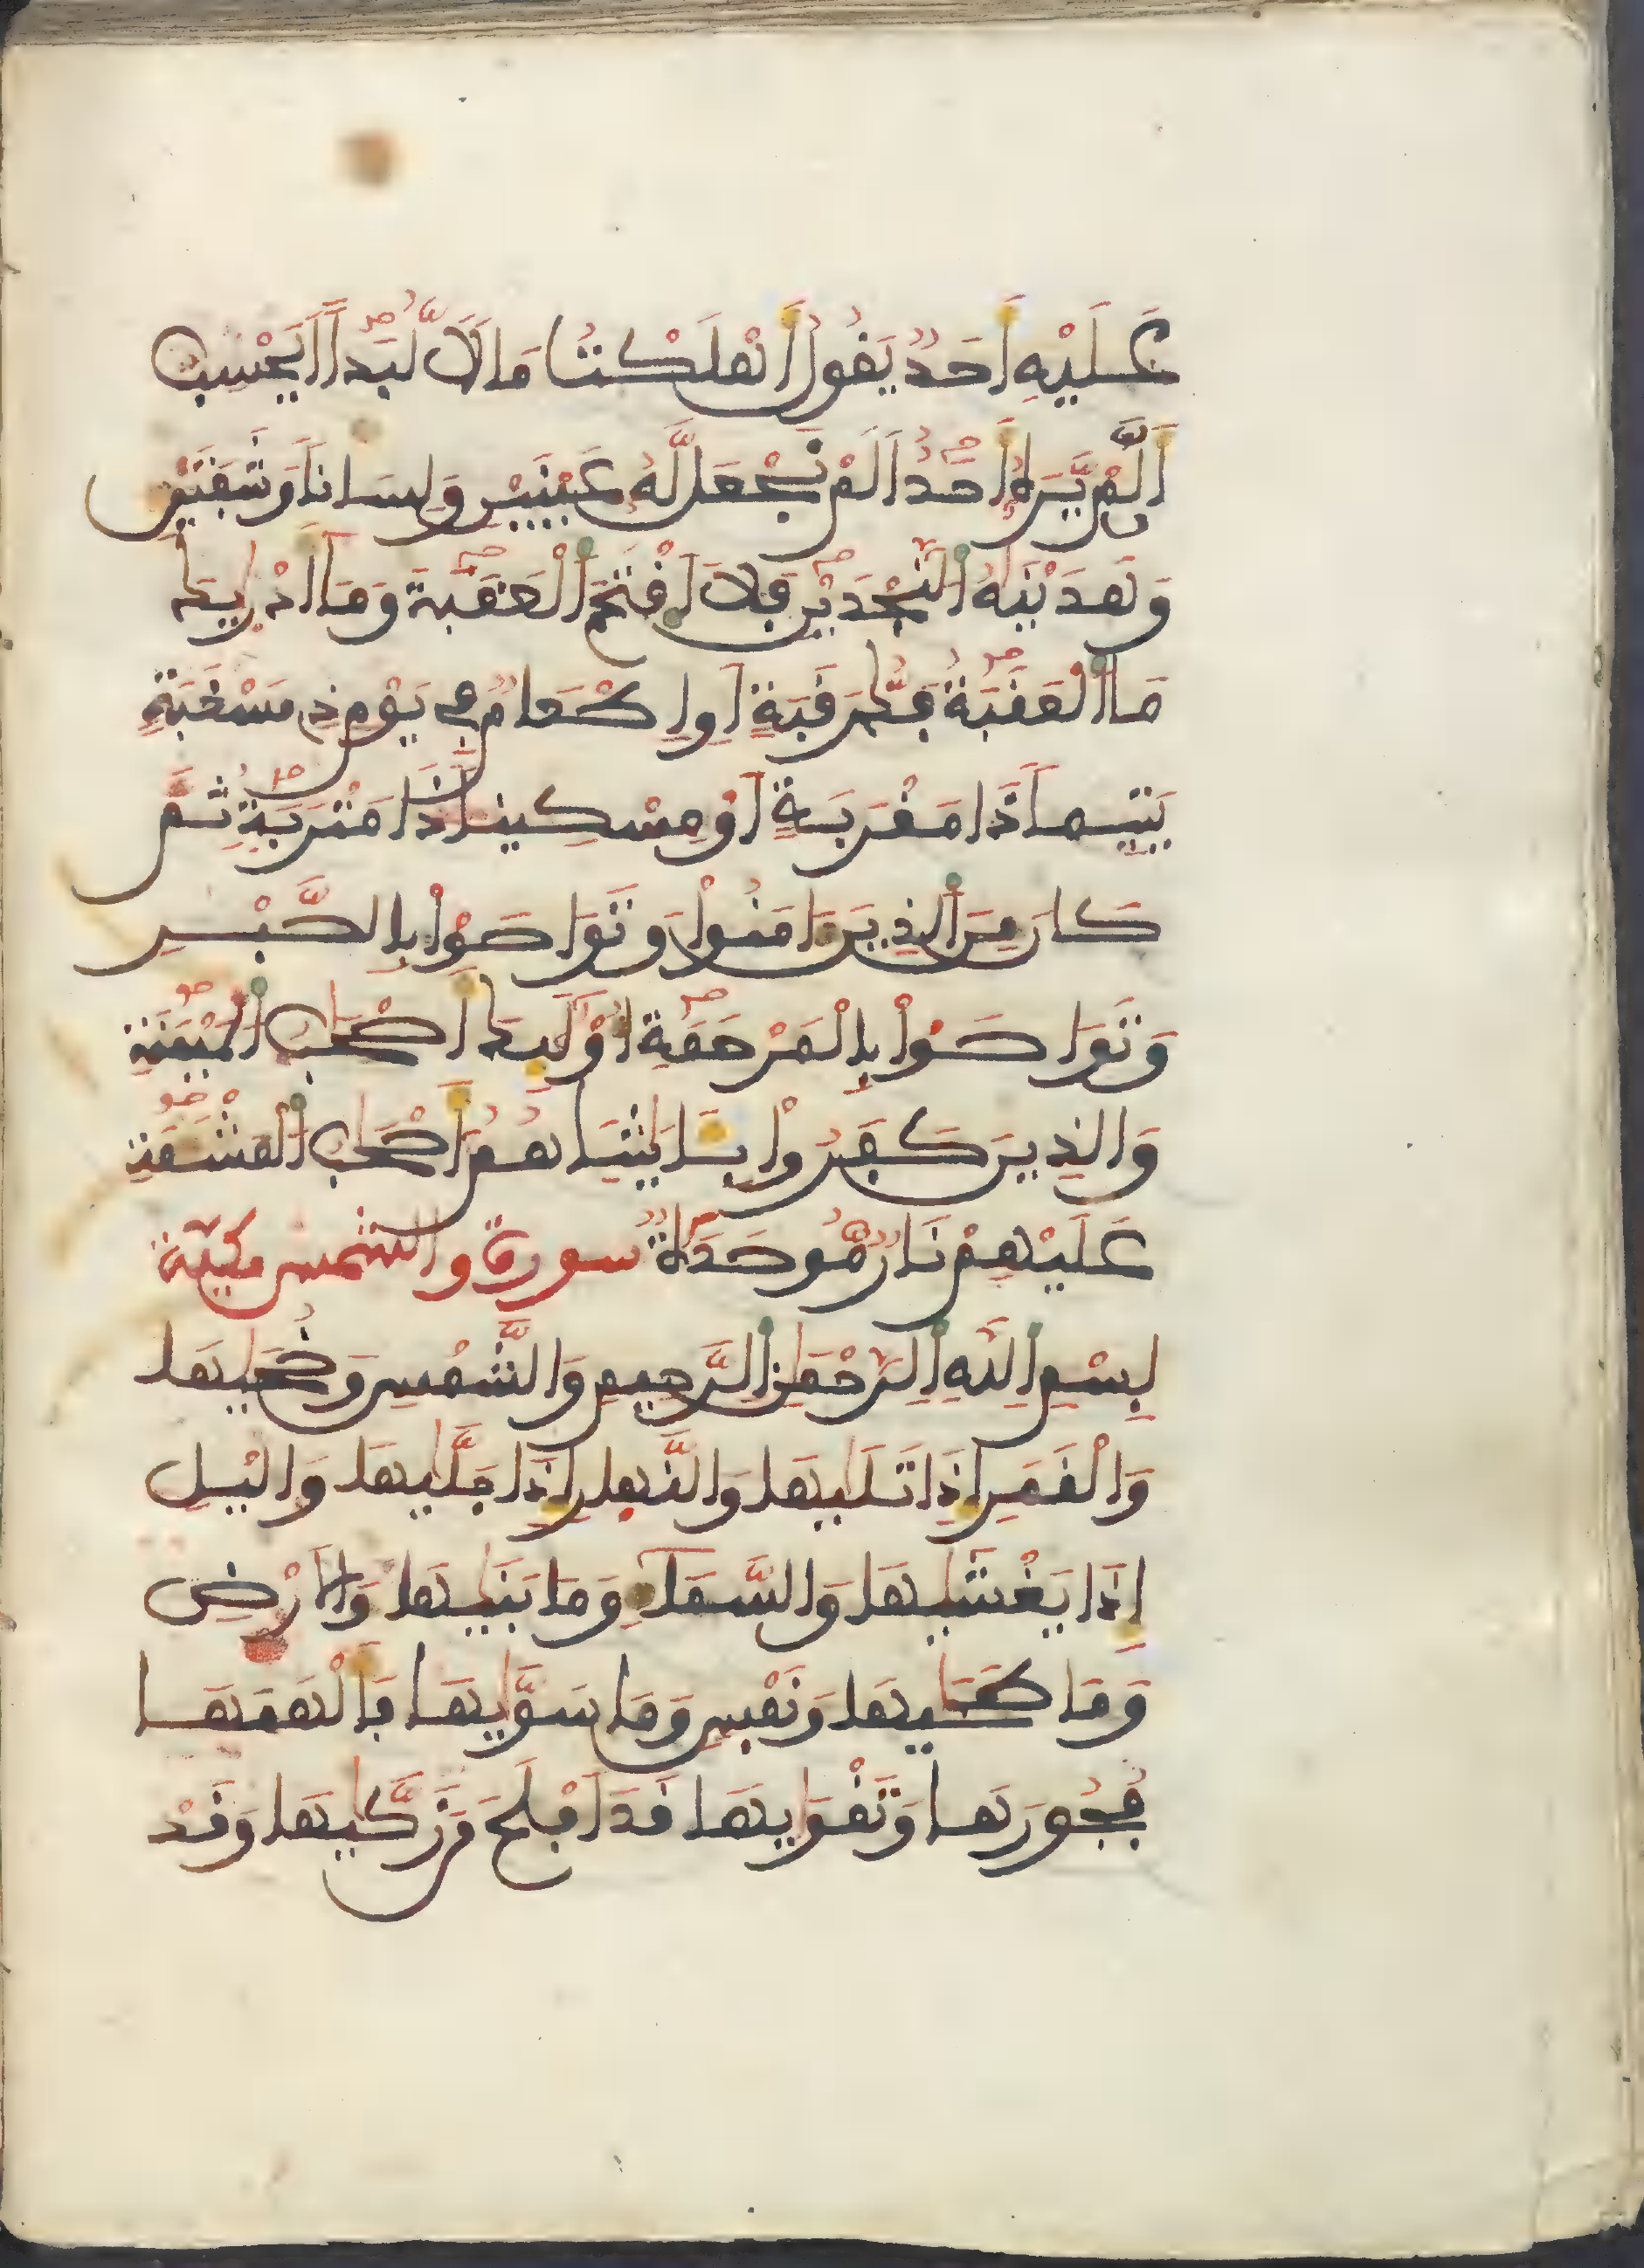 عَلَيْهِ أَحَدٌ يَقُولُ أَهْلَكْتُ مَالًا لُّبَدًا أَيَحْسِبُ
أَن لَّمْ يَرَهُ أَحَدٌ أَلَمْ نَجْعَل لَّهُ عَيْنَيْنِ وَلِسَانًا وَشَفَتَيْنِ
وَهَدَيْنَٰهُ النَّجْدَيْنِ فَلَا اَقْتَحَمَ الْعَقَبَةَ وَمَا أَدْرَيٰكَ
مَا الْعَقَبَةُ فَكُّ رَقَبَةٍ أَوِ اطْعَٰمٌ فِي يَوْمٍ ذِي مَسْغَبَةٍ
يَتِيمًا ذَا مَقْرَبَةٍ أَوْ مِسْكِينًا ذَا مَتْرَبَةٍ ثُمَّ
كَانَ مِنَ الذِينَ ءَامَنُواْ وَتَوَاصَوْاْ بِالصَّبْرِ
وَتَوَاصَوْاْ بِالْمَرْحَمَةِ أُوْلَٰئِكَ أَصْحَٰبُ الْمَيْمَنَةِ
وَالذِينَ كَفَرُواْ بِـَٔايَٰتِنَا هُمُ أَصْحَٰبُ الْمَشْـَٔمَةِ
عَلَيْهِمْ نَارٌ مُّوصَدَةٌ سورة والشمس مكية
بِسْمِ اللَّهِ الرَّحْمَٰنِ الرَّحِيمِ وَالشَّمْسِ وَضُحَيٰهَا
وَالْقَمَرِ إِذَا تَلَيٰهَا وَالنَّهَارِ إِذَا جَلَّيٰهَا وَاليْلِ
إِذَا يَغْشَيٰهَا وَالسَّمَاءِ وَمَا بَنَيٰهَا وَالَارْضِ
وَمَا طَحَيٰهَا وَنَفْسٍ وَمَا سَوَّيٰهَا فَأَلْهَمَهَا
فُجُورَهَا وَتَقْوَيٰهَا قَدَ اَفْلَحَ مَن زَكَّيٰهَا وَقَدْ